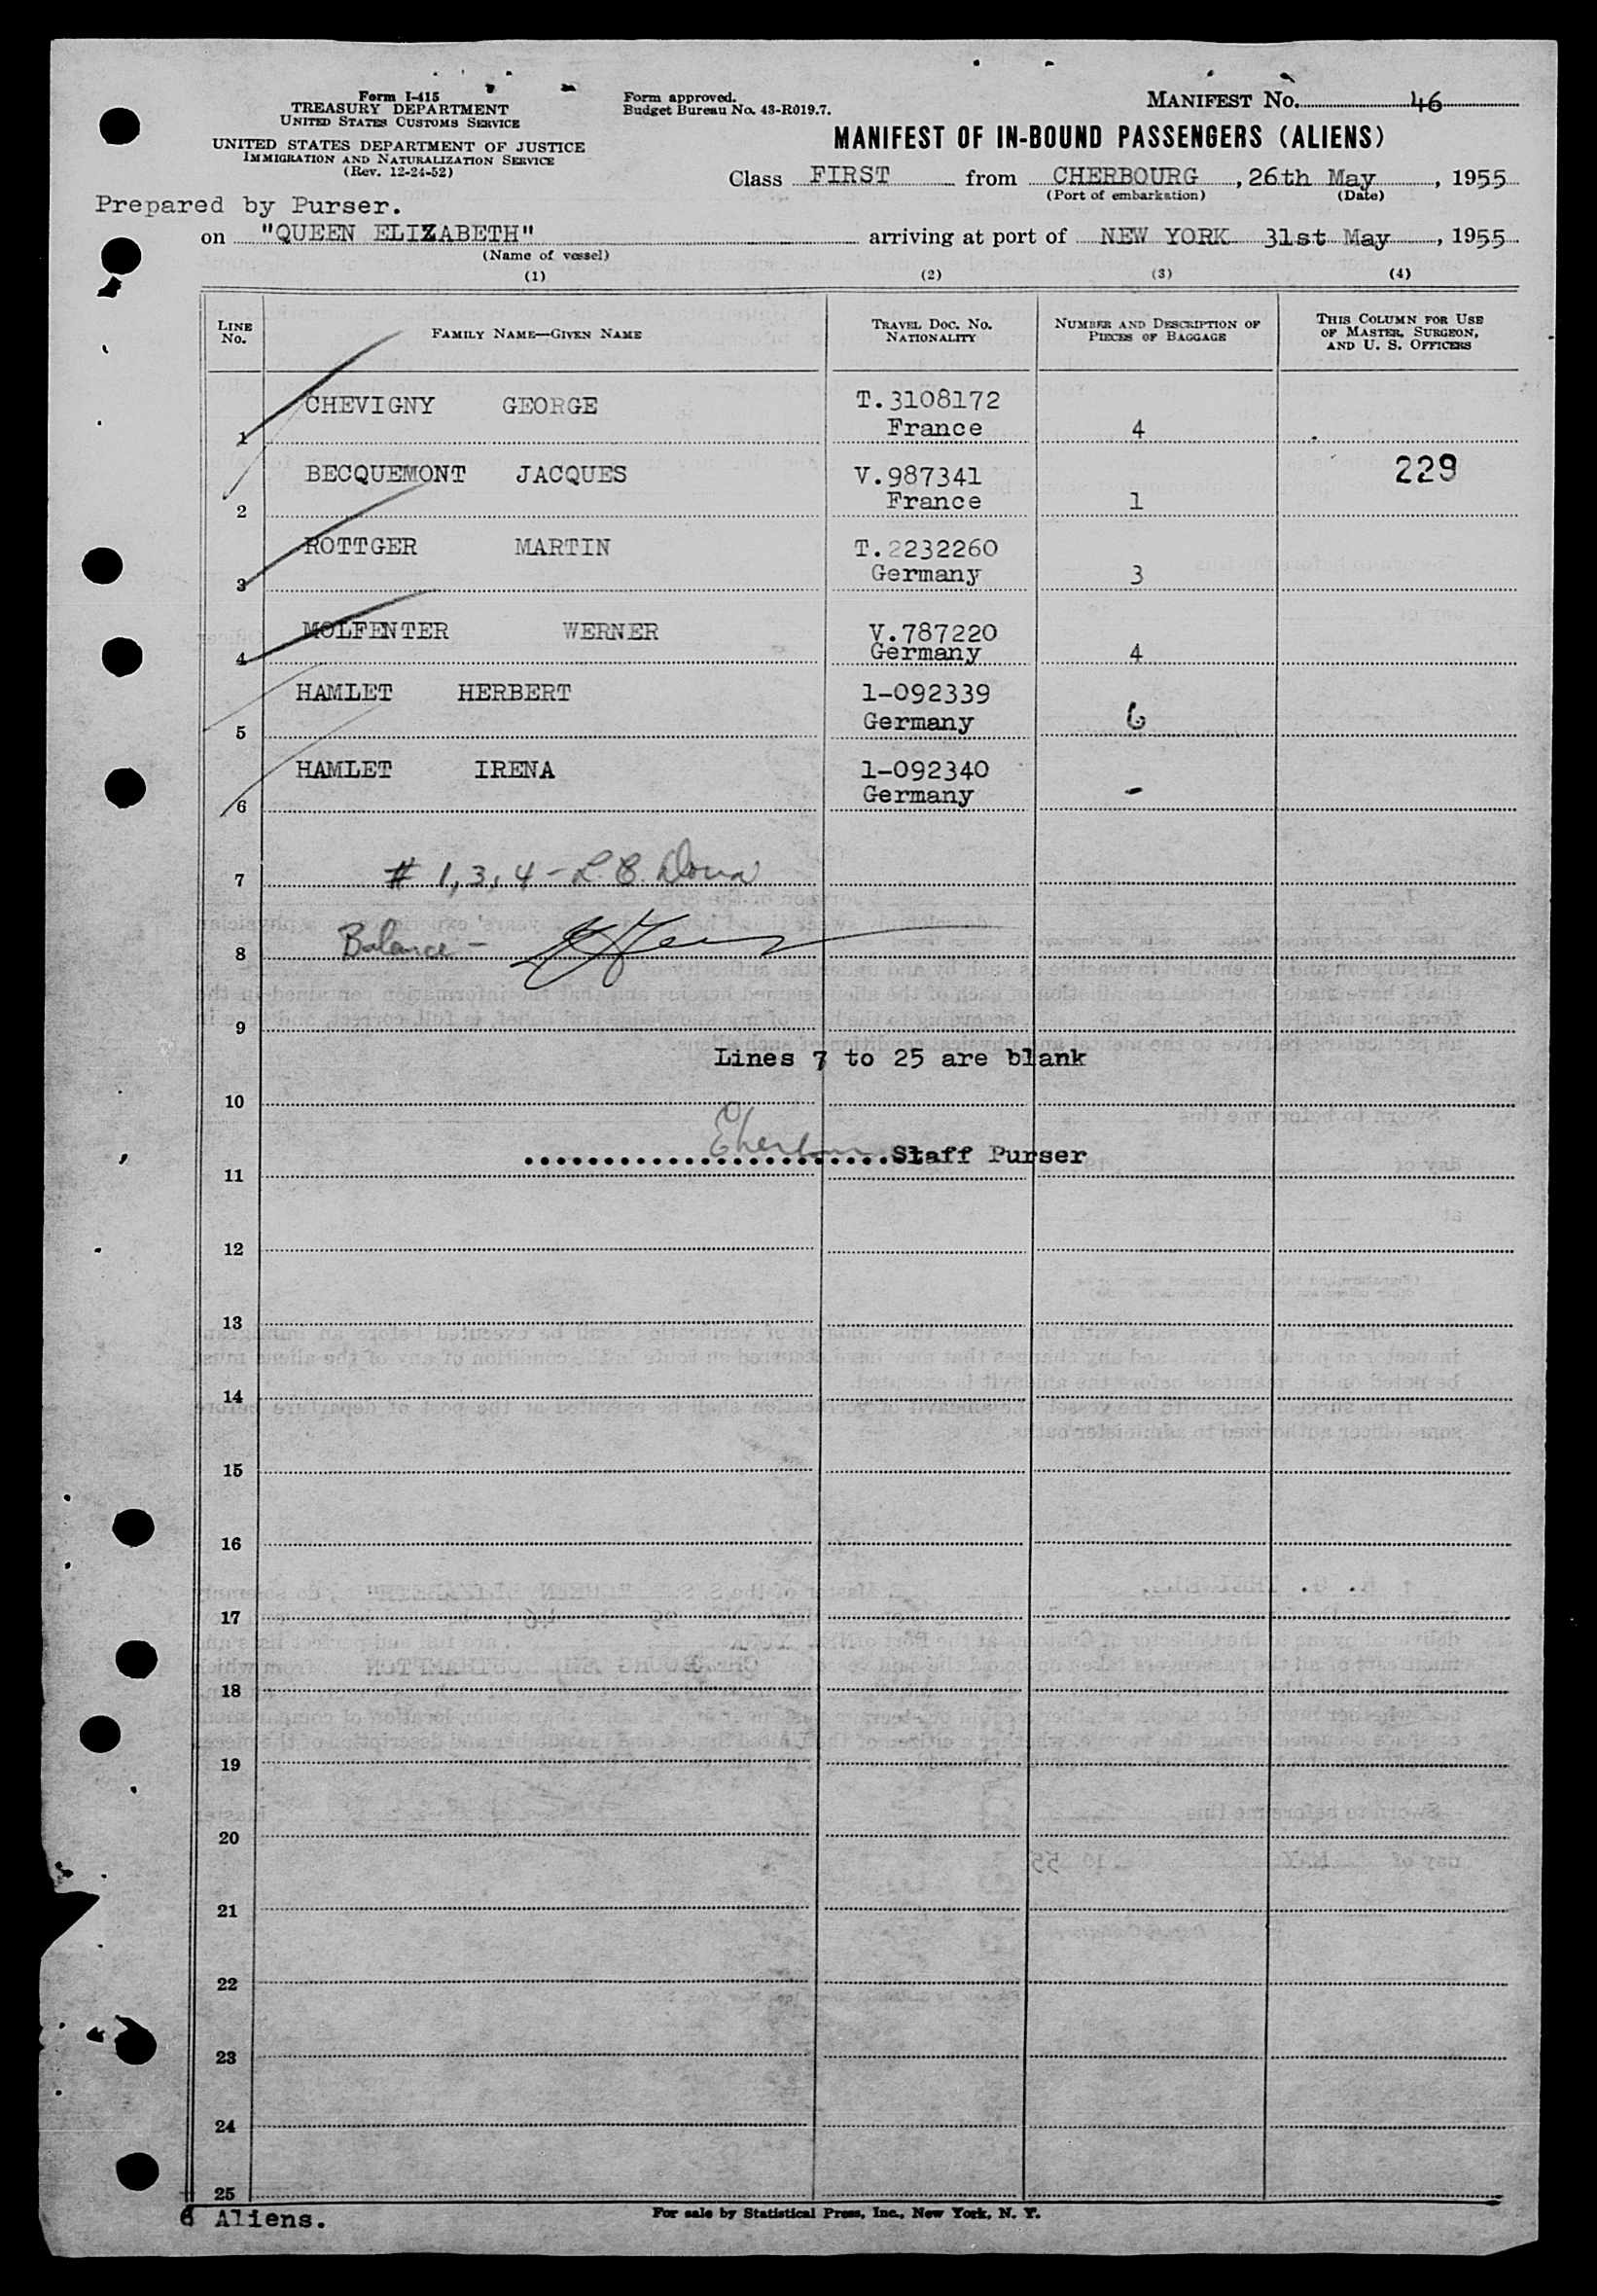 Form I-415
TREASURY DEPARTMENT
UNITED STATES CUSTOMS SERVICE
UNITED STATES DEPARTMENT OF JUSTICE
IMMIGRATION AND NATURALIZATION SERVICE
(Rev. 12-24-52)
Form approved.
Budget Bureau No. 43-R019.7.
MANIFEST NO. 46
MANIFEST OF IN-BOUND PASSENGERS (ALIENS)
Class FIRST from CHERBOURG, 26th May, 1955
(Port of embarkation) (Date)
Prepared by Purser.
on "QUEEN ELIZABETH" arriving at port of NEW YORK 31st May, 1955
(Name of vessel)
(1) (2) (3) (4)
LINE NO. FAMILY NAME—GIVEN NAME TRAVEL DOC. NO. NATIONALITY NUMBER AND DESCRIPTION OF PIECES OF BAGGAGE THIS COLUMN FOR USE OF MASTER, SURGEON, AND U. S. OFFICERS
CHEVIGNY GEORGE T.3108172
1 France 4
BECQUEMONT JACQUES V.987341 229
2 France 1
ROTTGER MARTIN T.2232260
3 Germany 3
MOLFENTER WERNER V.787220
4 Germany 4
HAMLET HERBERT 1-092339
5 Germany 6
HAMLET IRENA 1-092340
6 Germany -
7 # 1, 3, 4 -
8 Balance -
9
Lines 7 to 25 are blank
10
Staff Purser
11
12
13
14
15
16
17
18
19
20
21
22
23
24
25
6 Aliens.
For sale by Statistical Press, Inc., New York, N. Y.